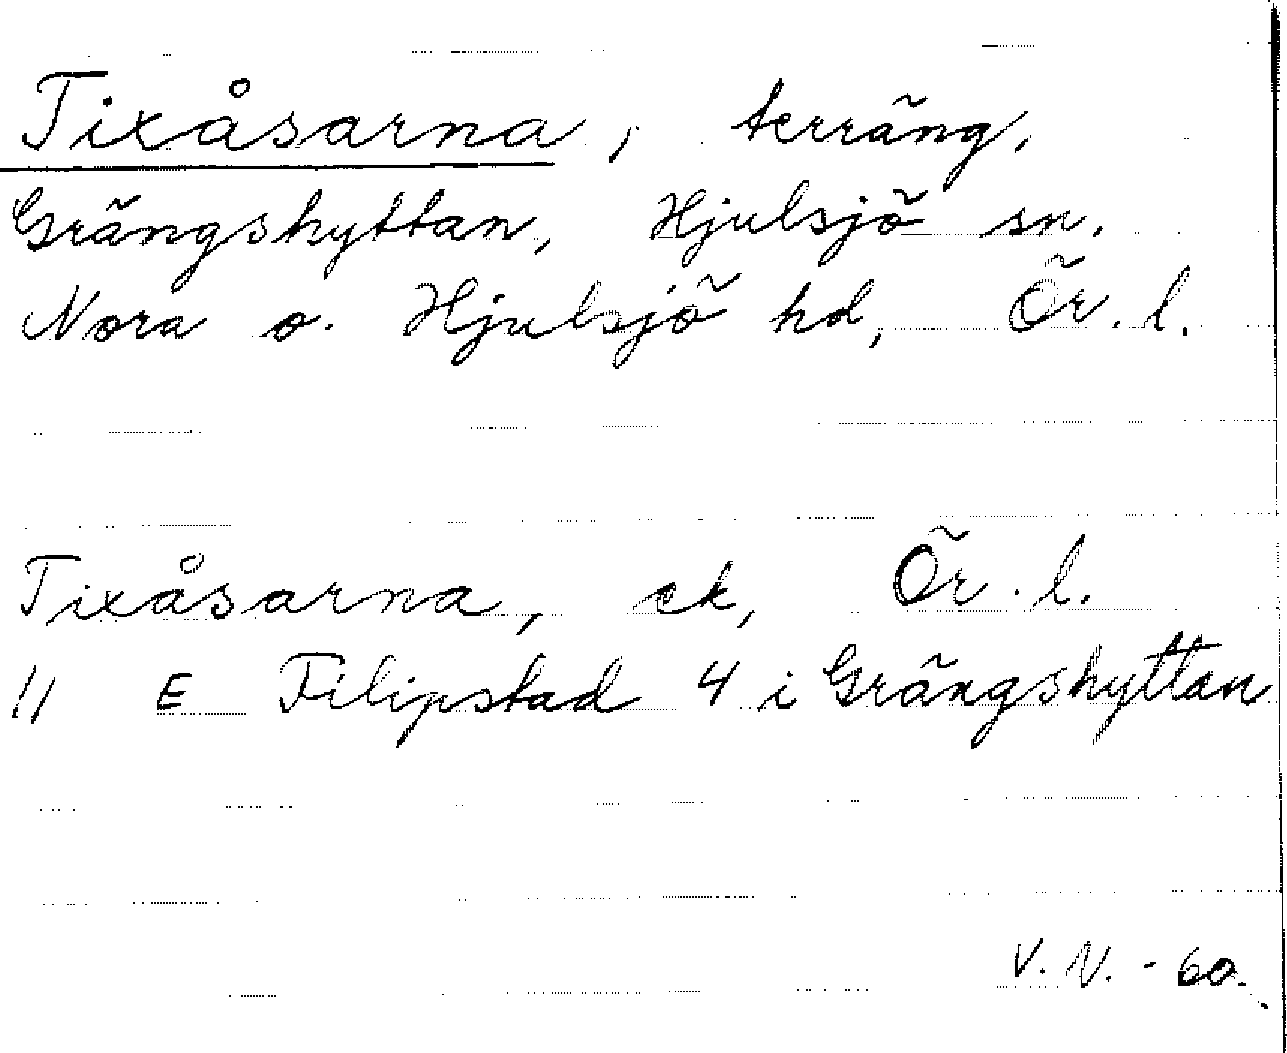 Tixåsarna, terräng,
Grängshyttan, Hjulsjö sn.
Nora o. Hjulsjö hd, Ör. l.
Tixåsarna, ek, Ör. l.
11 E Filipstad 4 i Grängshyttan
V. N. - 60.